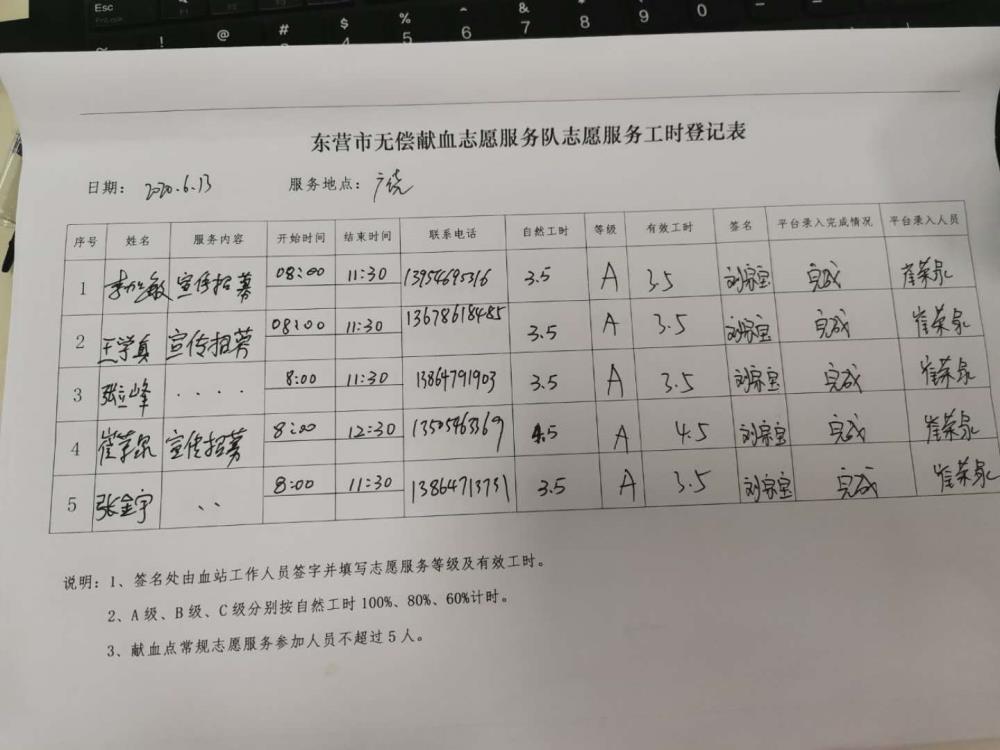 Esc
! @ # $ % & * ( )
4 5 6 7 8 9 0
东营市无偿献血志愿服务队志愿服务工时登记表
日期: 2020.6.13 服务地点: 广饶
序号 姓名 服务内容 开始时间 结束时间 联系电话 自然工时 等级 有效工时 签名 平台录入完成情况 平台录入人员
1 宣传招募 08:00 11:30 13954695316 3.5 A 3.5 刘宗宝 完成 崔荣泉
2 王学真 宣传招募 08:00 11:30 13678618485 3.5 A 3.5 刘宗宝 完成 崔荣泉
3 张立峰 .... 8:00 11:30 13864791903 3.5 A 3.5 刘宗宝 完成 崔荣泉
4 崔荣泉 宣传招募 8:00 12:30 13505463369 4.5 A 4.5 刘宗宝 完成 崔荣泉
5 张金宇 .. 8:00 11:30 13864713731 3.5 A 3.5 刘宗宝 完成 崔荣泉
说明:1、签名处由血站工作人员签字并填写志愿服务等级及有效工时。
2、A级、B级、C级分别按自然工时100%、80%、60%计时。
3、献血点常规志愿服务参加人员不超过5人。